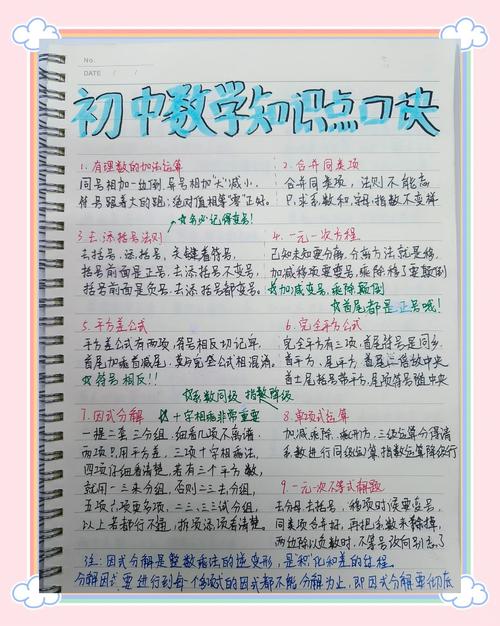 No.
DATE / /
初中数学知识点口诀
1. 有理数的加法运算
同号相加一边倒,异号相加"大"减"小",
符号跟着大的跑;绝对值相等"零"正好。
☆务必记得变号!
2. 合并同类项
合并同类项,法则不能忘
只求系数和,字母、指数不变样
3. 去、添括号法则
去括号、添括号,关键看符号,
括号前面是正号,去添括号不变号,
括号前面是负号,去添括号都变号。
4. 一元一次方程
已知未知要分离,分离方法就是移,
加减移项要变号,乘除移了要颠倒
☆加减变号,乘除颠倒
☆首尾都是正号哦!
5. 平方差公式
平方差公式有两项,符号相反切记牢,
首尾加乘首尾减尾,莫与完全公式相混淆。
☆符号相反!!
6. 完全平方公式
完全平方有三项,首尾符号是同乡,
首平方、尾平方,首尾二倍放中央
首±尾括号带平方,尾项符号随中央
☆系数同级,指数降级
7. 因式分解 ☆十字相乘非常重要
一提二套三分组,细看几项不离谱,
两项只用平方差,三项十字相乘法,
四项仔细看清楚,若有三个平方数,
就用一三来分组,否则二二去分组,
五项、六项更多项,二三、三三试分组,
以上若都行不通,拆项、添项看清楚。
8. 单项式运算
加减乘除、乘(开)方,三级运算分得清
系数进行同级运算,指数运算降级行
9. 一元一次不等式解题
去分母、去括号,移项时候要变号,
同类项合并好,再把系数来除掉,
两边除以负数时,不等号改向别忘了
注:因式分解是整数乘法的逆变形,是"积"化和差的过程。
分解因式要进行到每个多项式的因式都不能分解为止,即因式分解要彻底